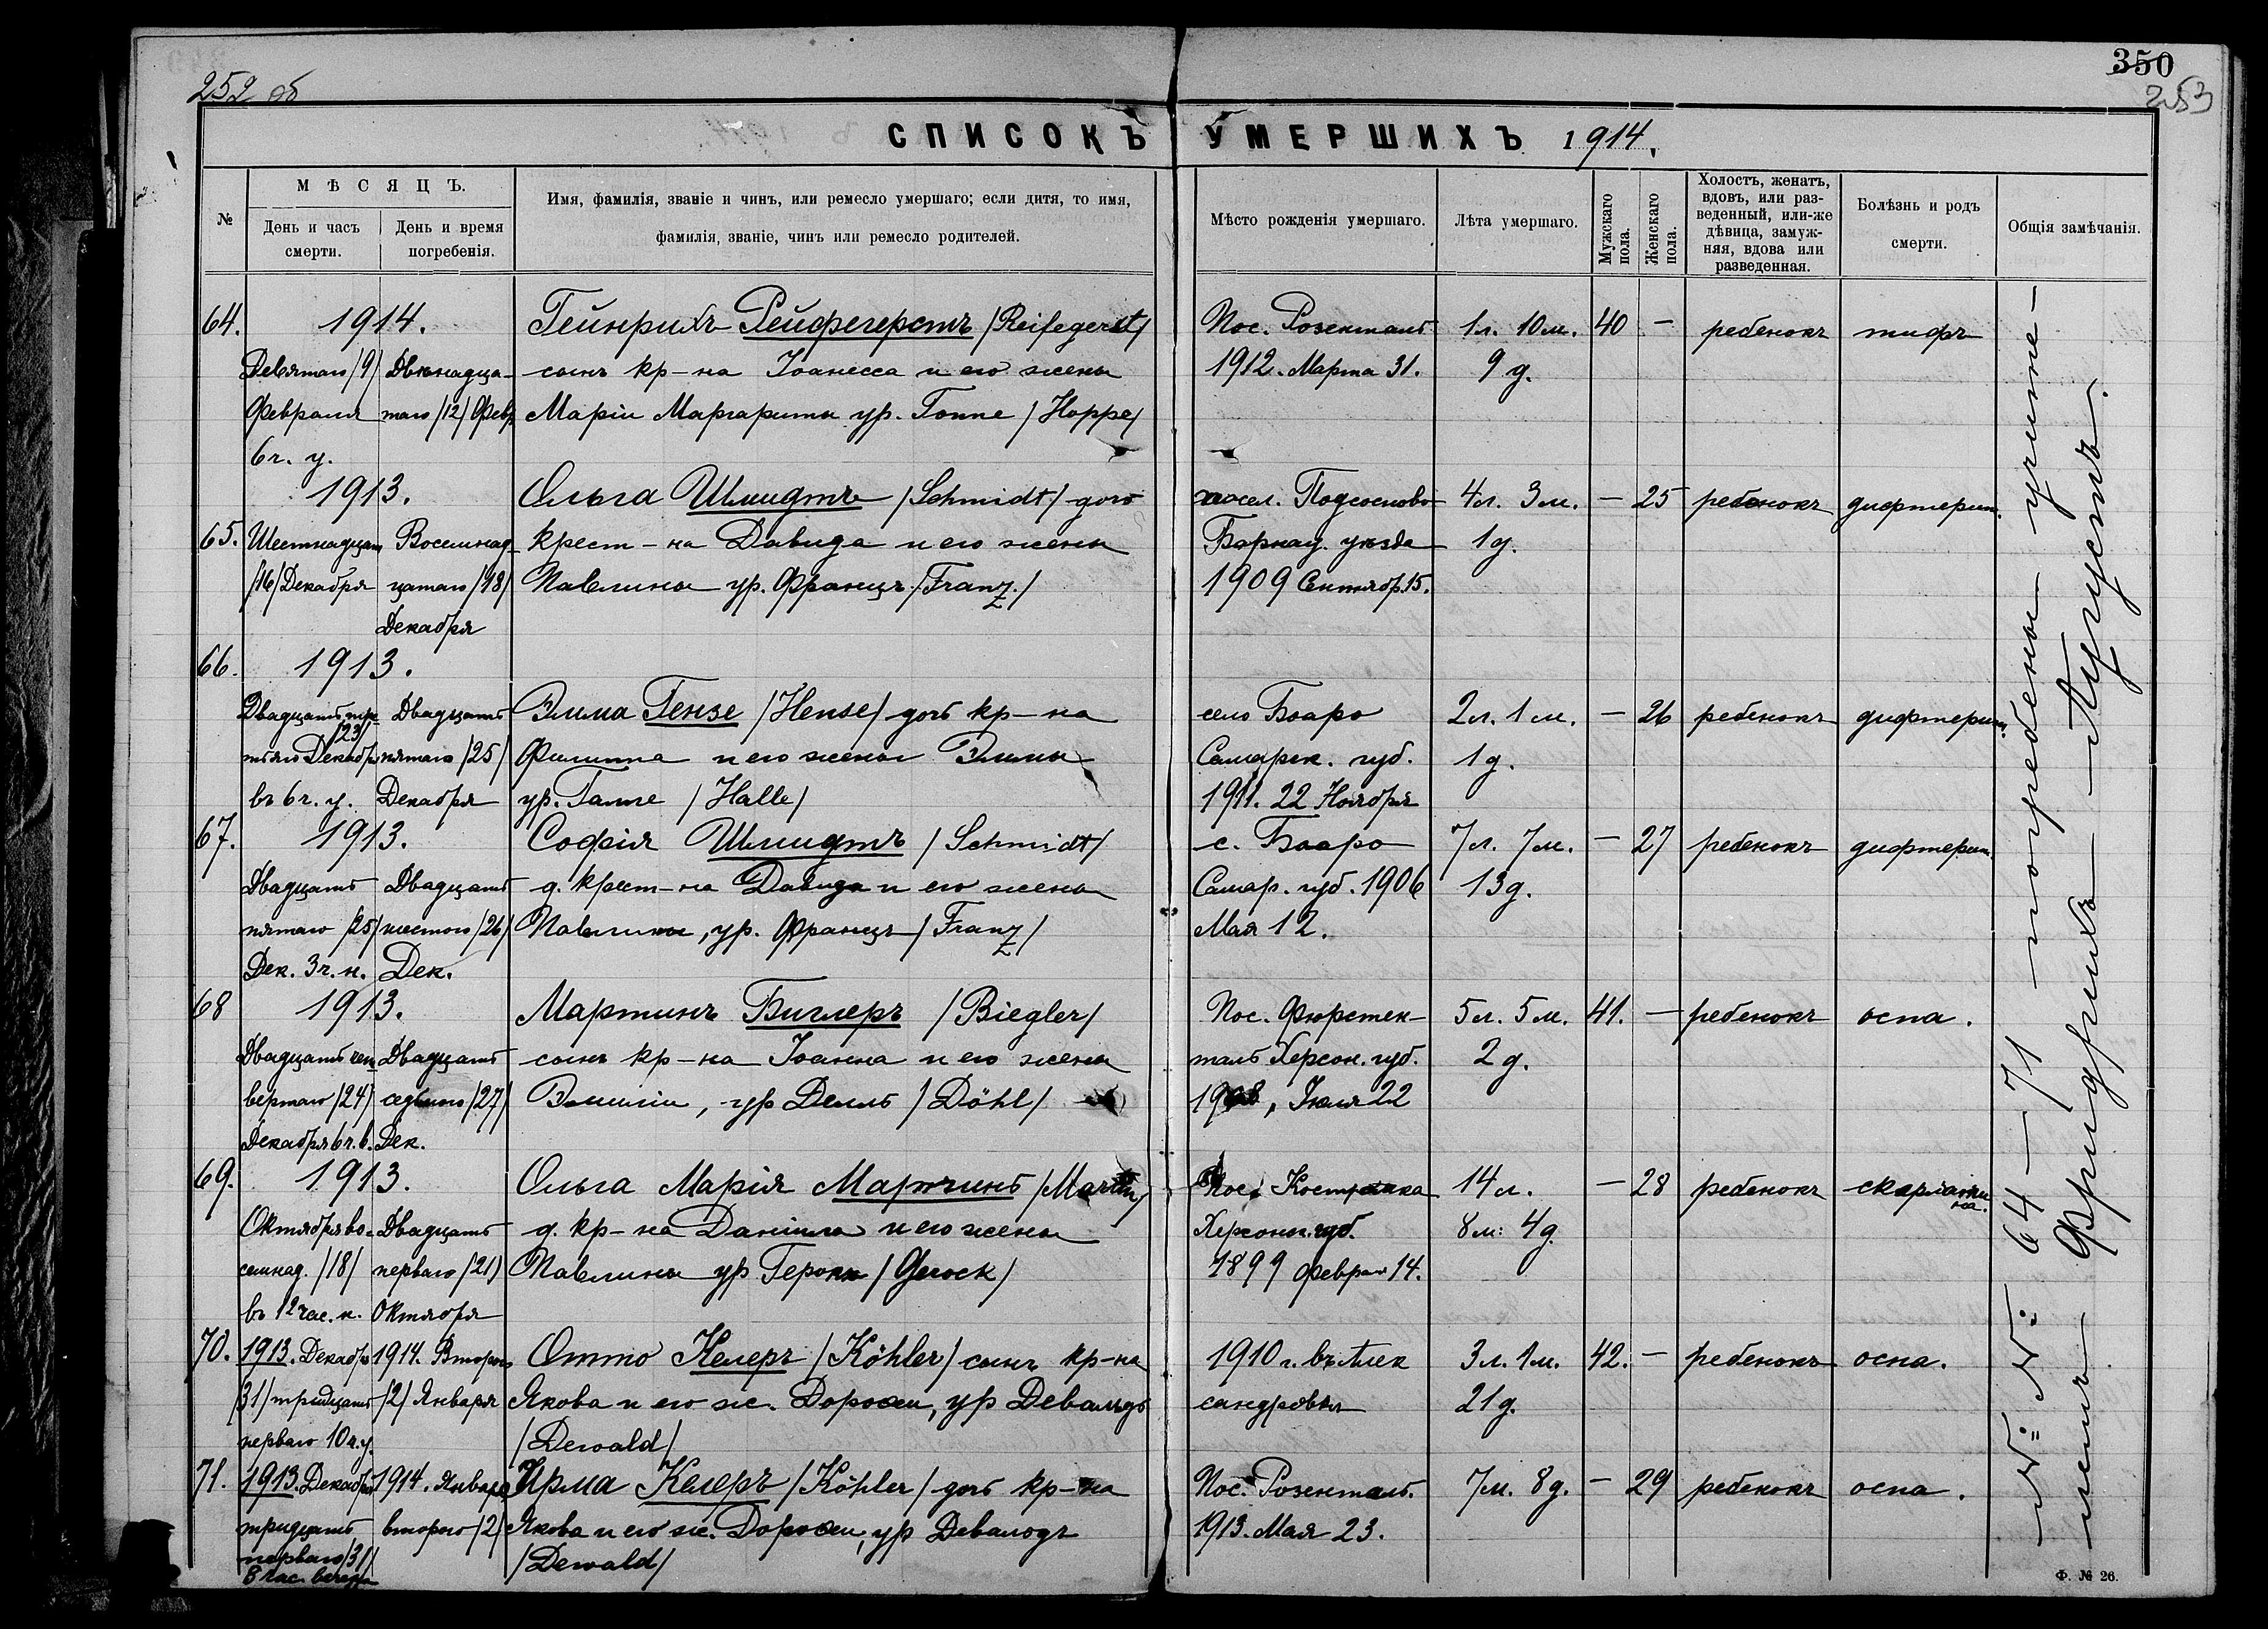 252 об
350
253
СПИСОКЪ УМЕРШИХЪ 1914.
№
МѢСЯЦЪ.
День и часъ смерти.
День и время погребенія.
Имя, фамилія, званіе и чинъ, или ремесло умершаго; если дитя, то имя,
фамилія, званіе, чинъ или ремесло родителей.
Мѣсто рожденія умершаго.
Лѣта умершаго.
Мужскаго пола.
Женскаго пола.
Холостъ, женатъ,
вдовъ, или раз-
веденный, или-же
дѣвица, замуж-
няя, вдова или
разведенная.
Болѣзнь и родъ
смерти.
Общія замѣчанія.
64. 1914. Гейнрихъ Рейфегерстъ /Reifegerst/ Пос. Розенталь 1 л. 10 м. 40 - ребенокъ тифъ
Девятаго /9/ Двѣнадца- сынъ кр-на Іоанесса и его жены 1912. Марта 31. 9 д.
Февраля таго /12/ Февр Маріи Маргариты ур. Гоппе /Hoppe/
6 ч. у.
1913. Ольга Шмидтъ /Schmidt/ дочь посел. Подсосново 4 л. 3 м. - 25 ребенокъ дифтерит.
65. Шестнадцат Восемнад- крест-на Давида и его жены Барнау. уѣзда 1 д.
/16/ Декабря цатаго /18/ Павлины ур. Францъ /Franz/ 1909 Сентябр. 15.
Декабря
66. 1913.
Двадцать тре- Двадцать Элма Гензе /Hense/ дочь кр-на село Боаро 2 л. 1 м. - 26 ребенокъ дифтерит.
/23/
тьяго Декабр пятаго /25/ Филиппа и его жены Элмы Самарск. губ. 1 д.
въ 6 ч. у. Декабря ур. Галле /Halle/ 1911. 22 Ноября
67. 1913. Софія Шмидтъ /Schmidt/ с. Боаро 7 л. 7 м. - 27 ребенокъ дифтерит.
Двадцать Двадцать д. крест-на Давида и его жены Самар. губ. 1906 13 д.
пятаго /25/ шестого /26/ Павлины, ур. Францъ /Franz/ Мая 12.
Дек. 3 ч. н. Дек.
68 1913. Мартинъ Биглеръ /Biegler/ Пос. Фюрстен- 5 л. 5 м. 41. - ребенокъ оспа.
Двадцать чет- Двадцать сынъ кр-на Іоанна и его жены таль Херсон. губ. 2 д.
вертаго /24/ седьмого /27/ Эмиліи, урДелль /Döhl/ 1908, Іюля 22
Декабря 6 ч. в. Дек.
69. 1913. Ольга Марія Мартинъ /Martin/ Пос. Костр 14 л. - 28 ребенокъ скарлатина.
Октября во- Двадцать д. кр-на Даніила и его жены Херсонс. губ. 8 м. 4 д.
семнад. /18/ перваго /21/ Павлины ур Герокъ /Gerock/ 1899 Феврал 14.
въ 12 час. н. Октября
70. 1913. Декабр 1914. Второго Отто Келеръ /Köhler/ сынъ кр-на 1910 г. въ Алек 3 л. 1 м. 42. - ребенокъ оспа.
/31/ тридцать /2/ Января Якова и его ж. Доротеи, ур Девальдъ сандровкѣ 21 д.
перваго 10 ч. у. /Dewald/
71. 1913. Декабря 1914. Января Ирма Келеръ /Köhler/ дочь кр-на Пос. Розенталь. 7 м. 8 д. - 29 ребенокъ оспа.
тридцать второго /2/ Якова и его ж. Доротеи, ур Девальдъ 1913. Мая 23.
перваго /31/ /Dewald/
8 час. вечера
№ № 64 - 71 погребены учите-
лемъ Фридрихъ Августъ.
Ф. № 26.